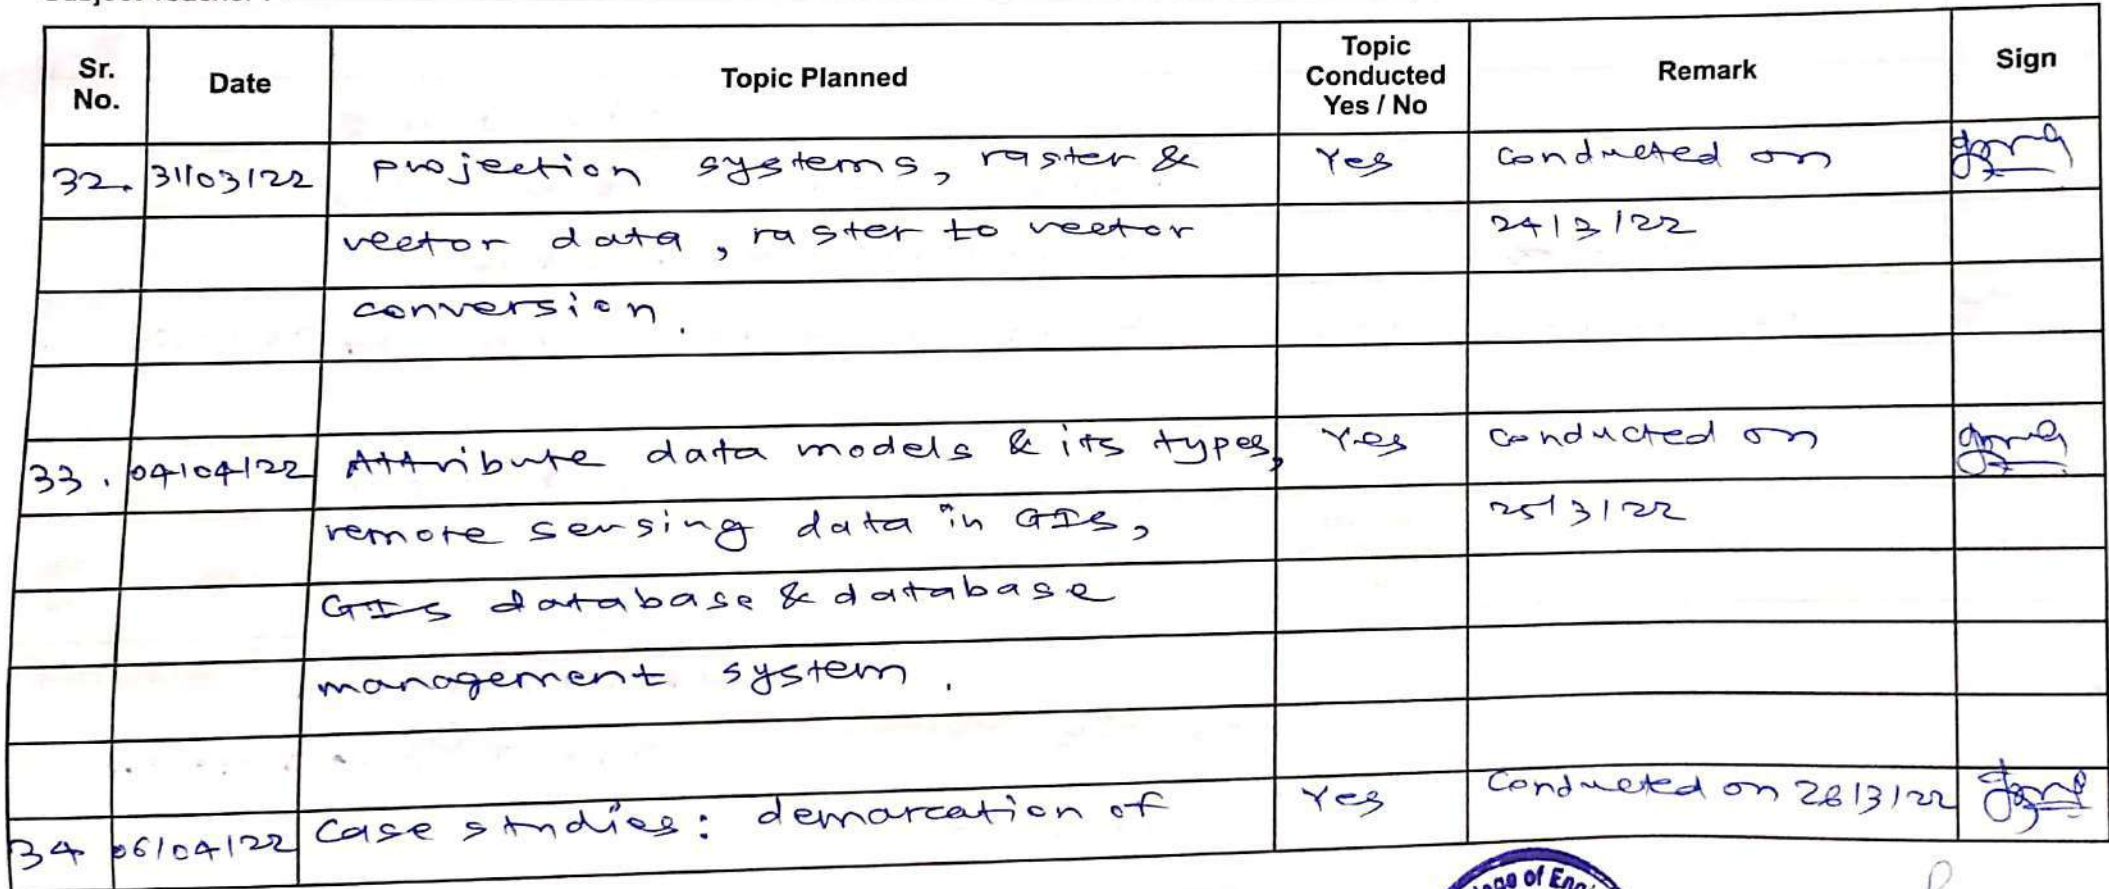 Sr. No. Date Topic Planned Topic Conducted Yes / No Remark Sign
32. 31/03/22 projection systems, raster & Yes conducted on
vector data, raster to vector 24/3/22
conversion.
33. 04/04/22 Attribute data models & its types, Yes conducted on
remote sensing data in GIS, 25/3/22
GIS database & database
management system.
34 06/04/22 Case studies: demarcation of Yes Conducted on 28/3/22